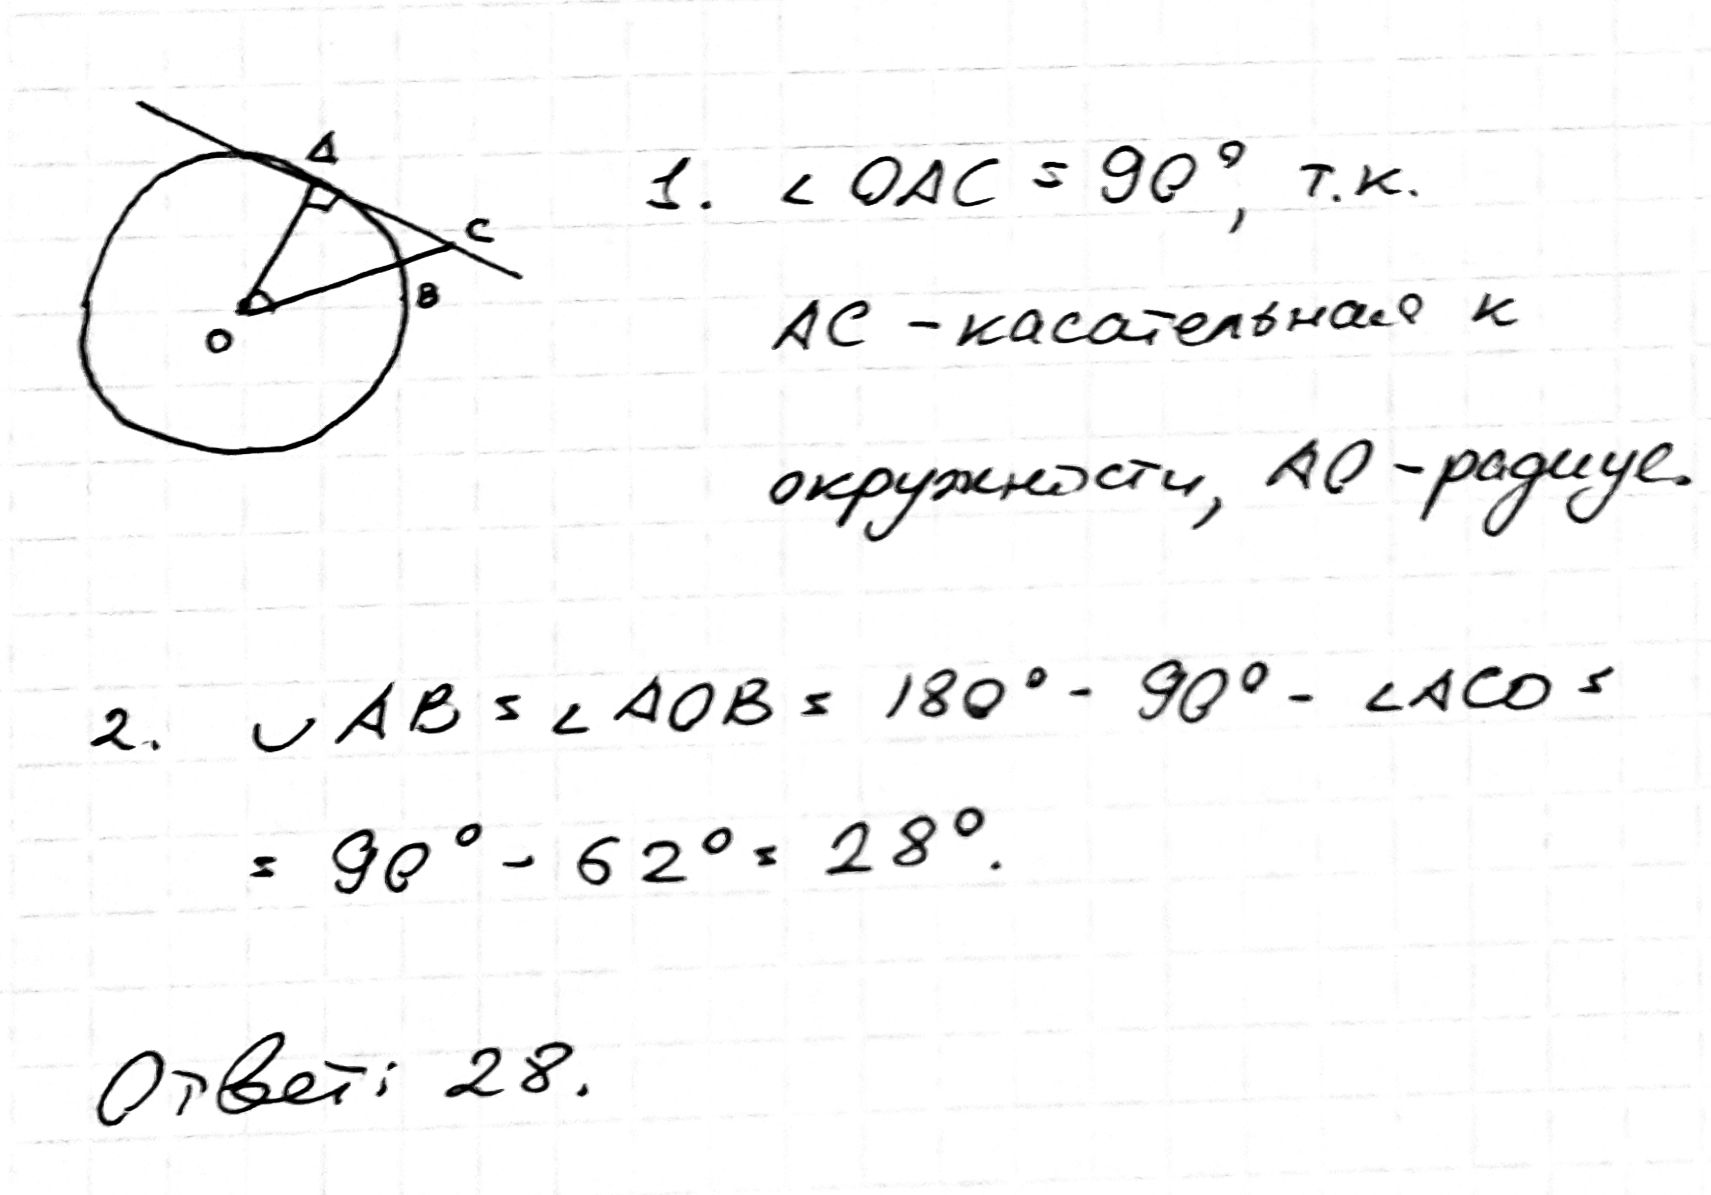 A
C
B
O
1. ∠ OAC = 90°, т.к.
AC - касательная к
окружности, AO - радиус.
2. ◡ AB = ∠ AOB = 180° - 90° - ∠ACO =
= 90° - 62° = 28°.
Ответ: 28.